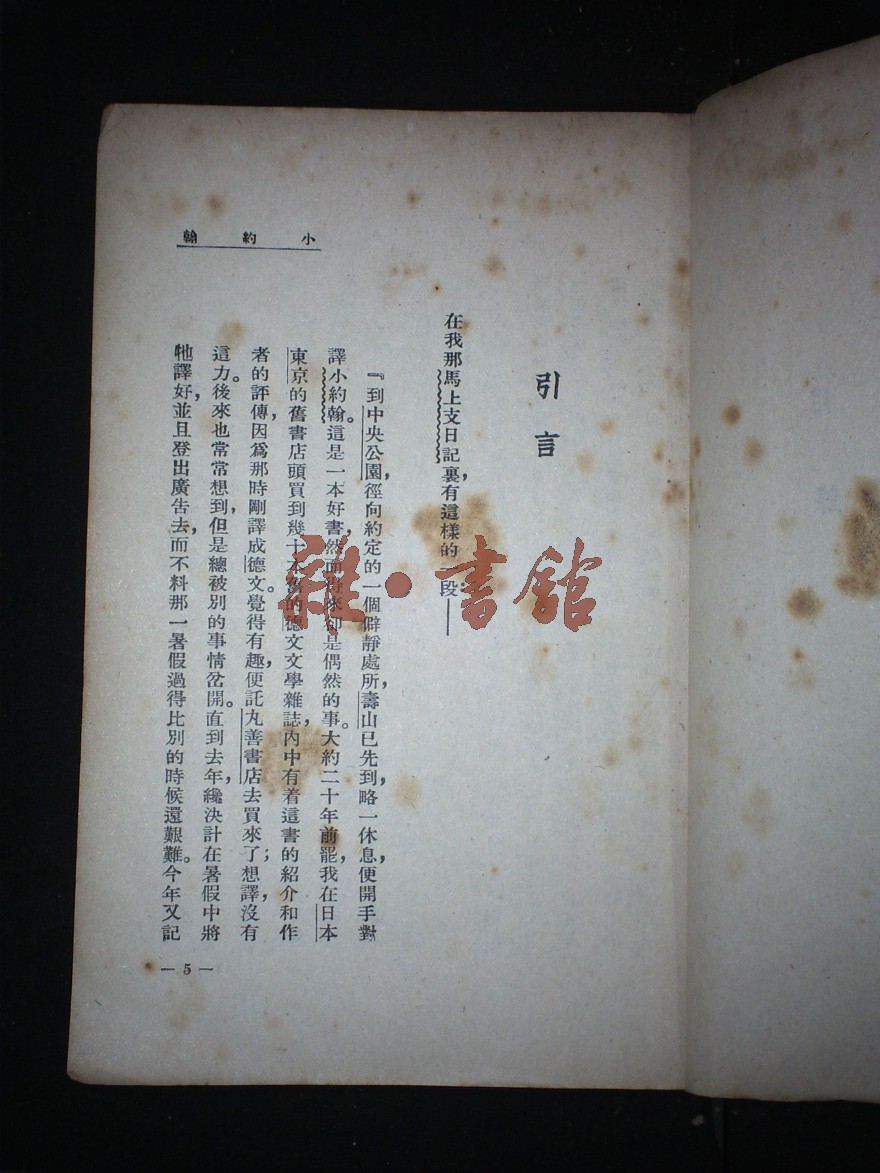 小約翰
引言
在我那馬上支日記裏，有這樣的一段——
『到中央公園，徑向約定的一個僻靜處所，壽山已先到，略一休息，便開手對
譯小約翰。這是一本好書，然而得來卻是偶然的事。大約二十年前罷，我在日本
東京的舊書店頭買到幾十本舊的德文文學雜誌，內中有着這書的紹介和作
者的評傳，因爲那時剛譯成德文。覺得有趣，便託丸善書店去買來了；想譯，沒有
這力。後來也常常想到，但是總被別的事情岔開。直到去年，纔決計在暑假中將
牠譯好，並且登出廣告去，而不料那一暑假過得比別的時候還艱難。今年又記
— 5 —
雜·書館